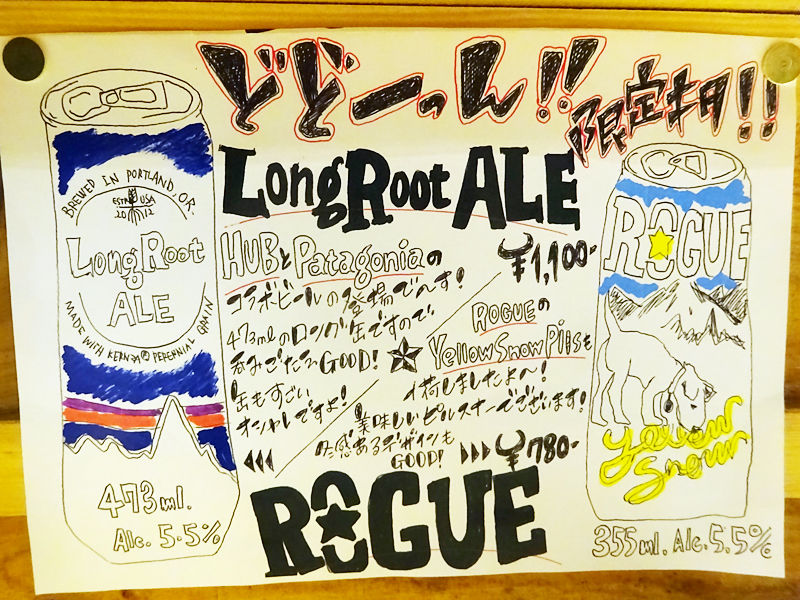 どどーっん!!
限定オタ!!
LongRoot ALE
BREWED IN PORTLAND, OR.
ESTD USA
2012
LongRoot
ALE
MADE WITH KERNZA® PERENNIAL GRAIN
473ml.
Alc. 5.5%
HUBとPatagoniaの
コラボビールの登場で〜す!
473mlのロング缶ですので
呑みごたえGOOD!
缶もすごい
オシャレですよ!
¥1,100-
ROGUEの
Yellow Snow Pilsも
入荷しましたよ〜!
美味しいピルスナーでございます!
デザインも
GOOD!
¥780-
ROGUE
ROGUE
Yellow
Snow
355ml. Alc. 5.5%